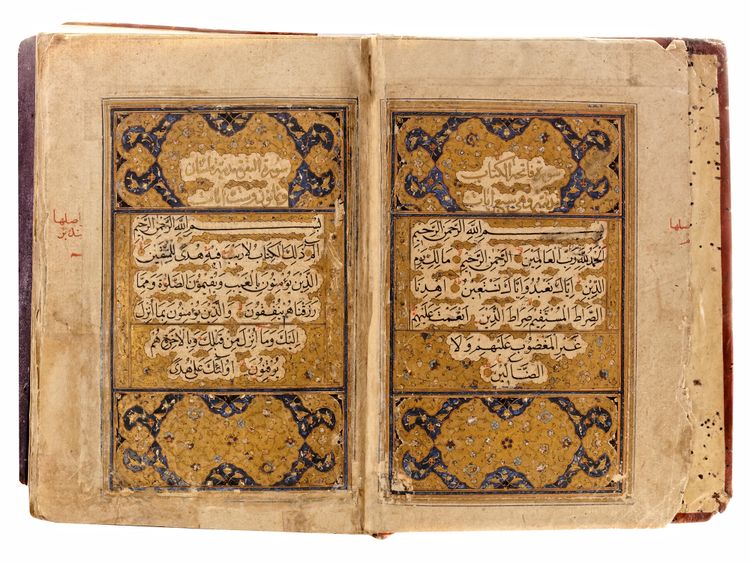 سورة فاتحة الكتاب
سبع آيات
بسم الله الرحمن الرحيم
الحمد لله رب العالمين الرحمن الرحيم مالك يوم
الدين اياك نعبد واياك نستعين اهدنا
الصراط المستقيم صراط الذين انعمت عليهم
غير المغضوب عليهم ولا
الضالين
سورة البقره مائتان
وثمانون وست آيات
بسم الله الرحمن الرحيم
الم ذلك الكتاب لا ريب فيه هدى للمتقين
الذين يؤمنون بالغيب ويقيمون الصلوة ومما
رزقناهم ينفقون والذين يؤمنون بما انزل
اليك وما انزل من قبلك وبالاخرة هم
يوقنون اولئك على هدى